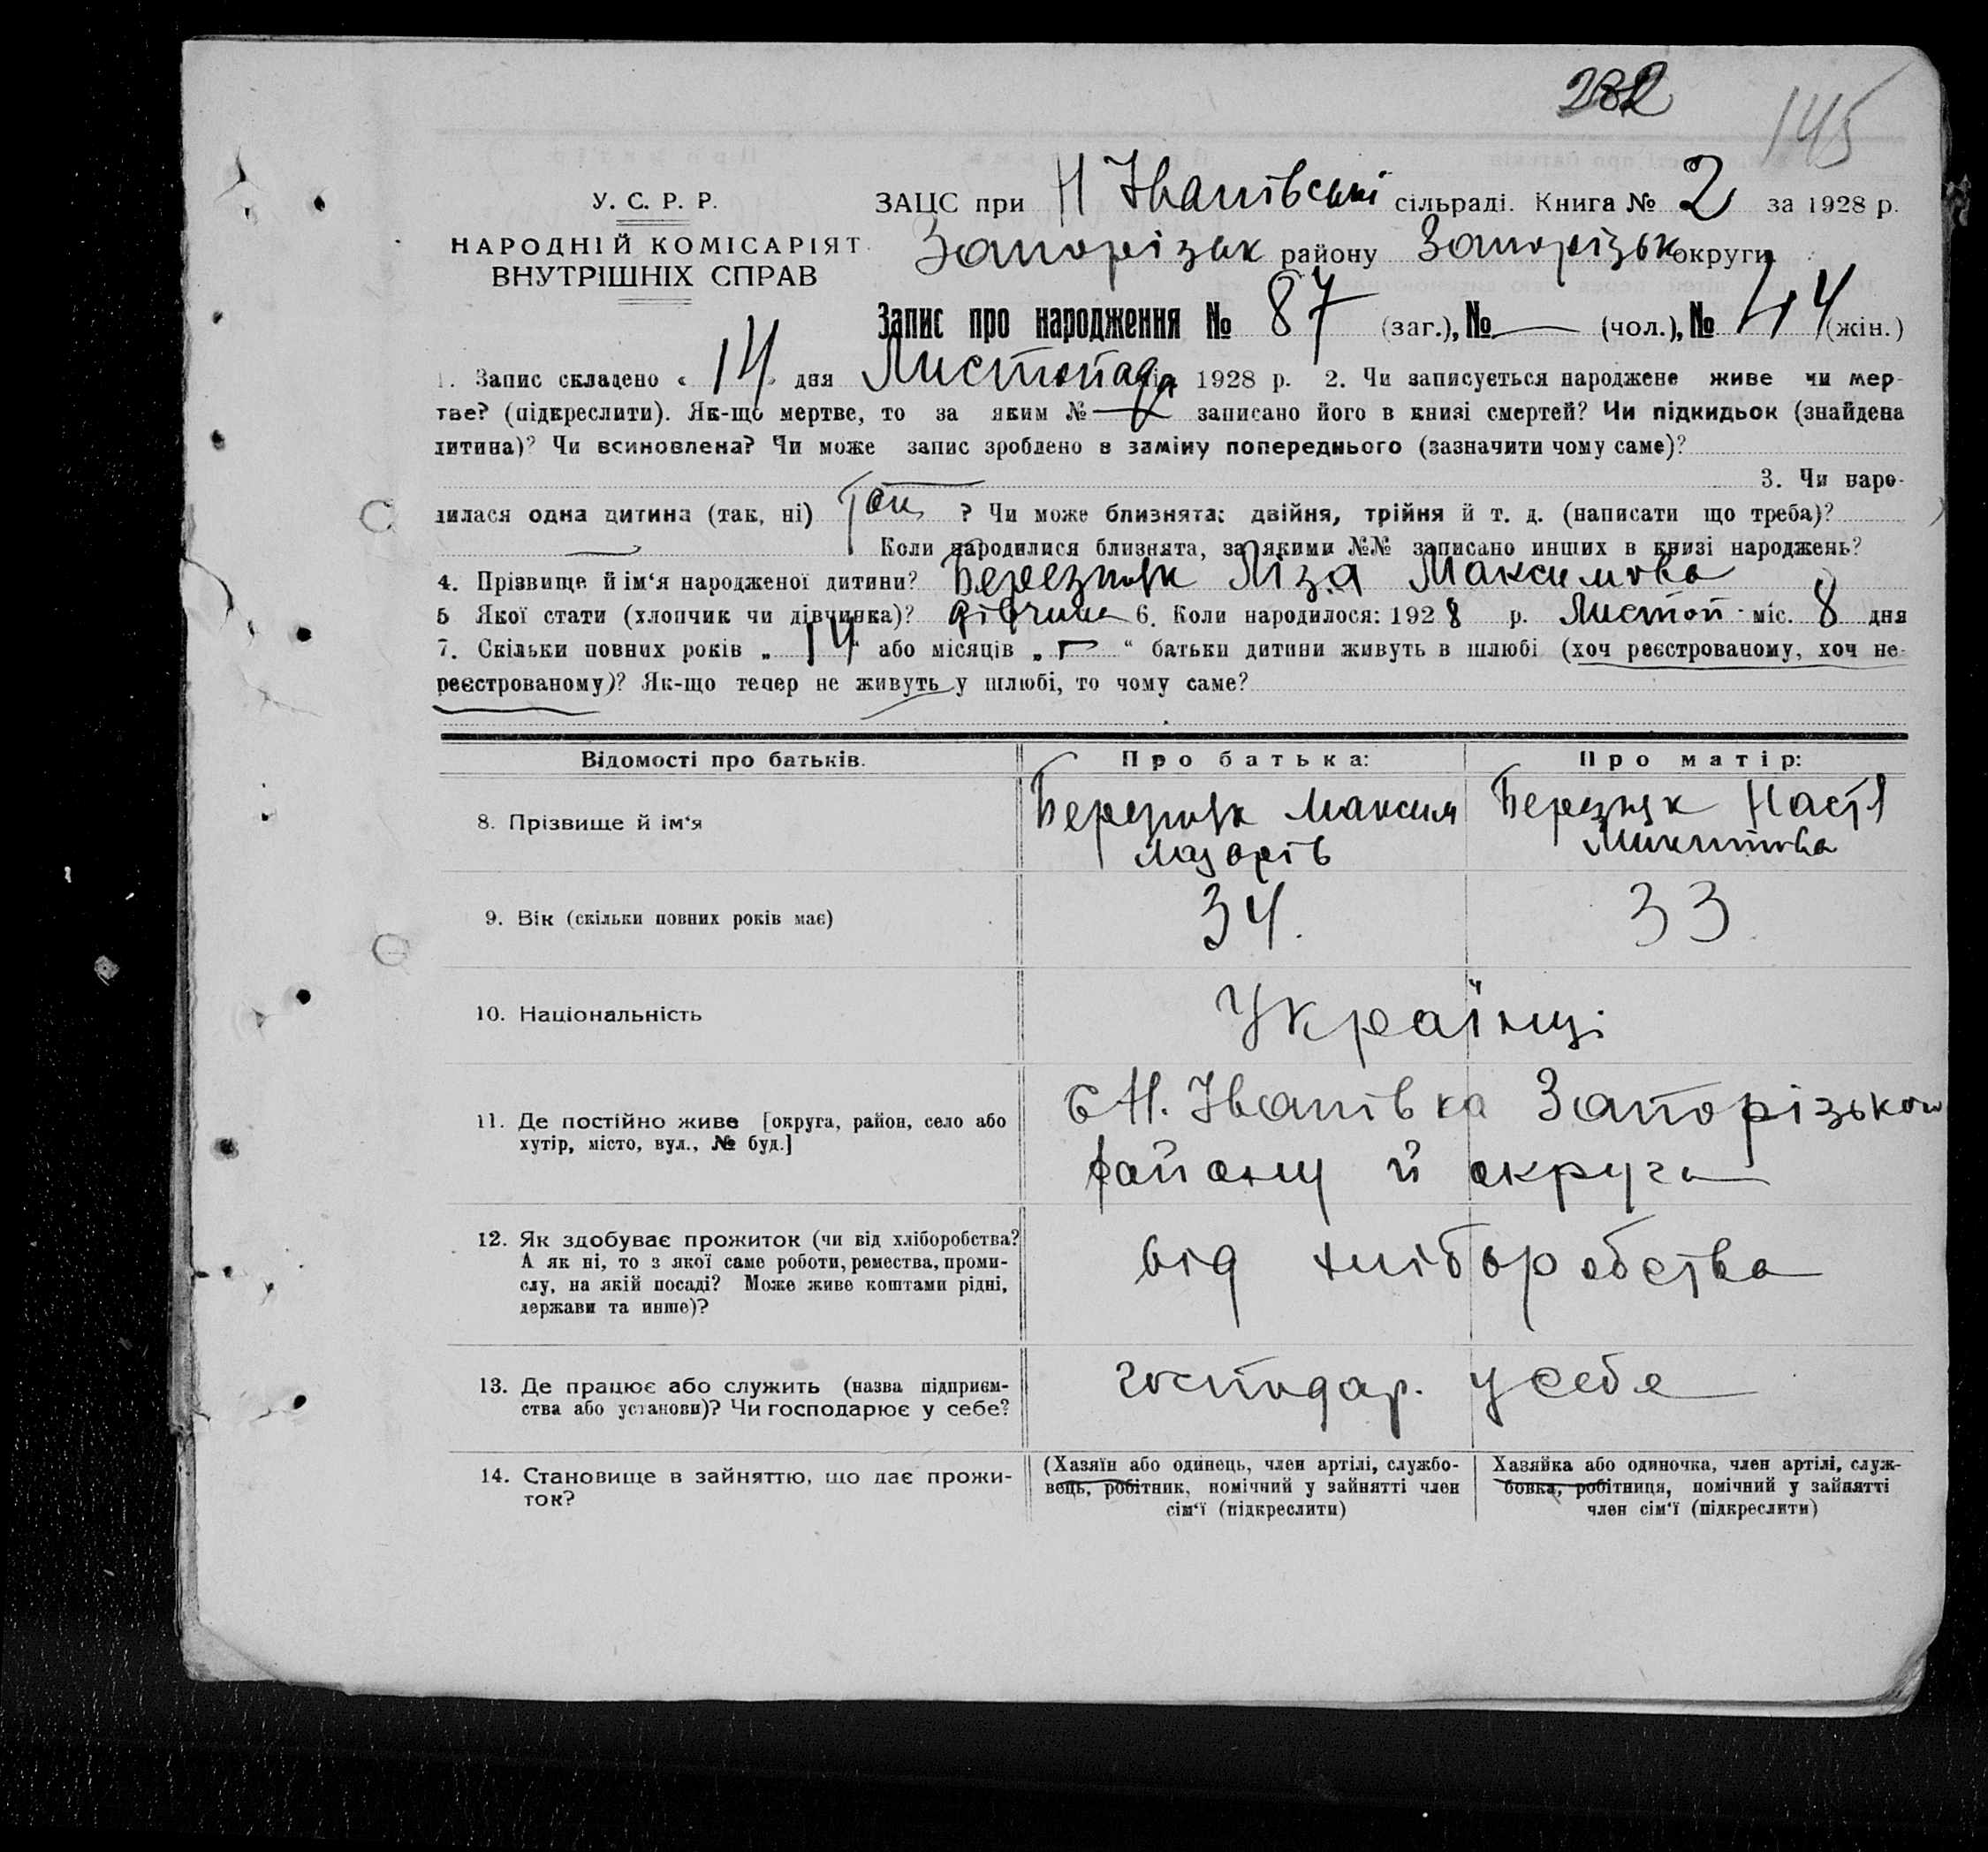 282
145
У. С. Р. Р.
НАРОДНІЙ КОМІСАРІЯТ
ВНУТРІШНІХ СПРАВ
ЗАЦС при Н Іванівські сільраді. Книга № 2 за 1928 р.
Запорізьк району Запорізьк округи
Запис про народження № 87 (заг.), № — (чол.), № 44 (жін.)
1. Запис складено « 14 » дня Листопада 1928 р. 2. Чи записується народжене живе чи мер-
тве? (підкреслити). Як-що мертве, то за яким № — записано його в книзі смертей? Чи підкидьок (знайдена
дитина)? Чи всиновлена? Чи може запис зроблено в заміну попереднього (зазначити чому саме)?
3. Чи наро-
дилася одна дитина (так, ні) Так ? Чи може близнята: двійня, трійня й т. д. (написати що треба)?
— Коли народилися близнята, за якими №№ записано инших в книзі народжень?
4. Прізвище й ім‘я народженої дитини? Березняк Ліза Максимова
5 Якої стати (хлопчик чи дівчинка)? дівчина 6. Коли народилося: 1928 р. Листоп міс. 8 дня
7. Скільки повних років „ 14 “ або місяців „ — “ батьки дитини живуть в шлюбі (хоч реєстрованому, хоч не-
реєстрованому)? Як-що тепер не живуть у шлюбі, то чому саме?
Відомості про батьків. Про батька: Про матір:
8. Прізвище й ім‘я Березняк Максим Березняк Настя
Мазарів Микитова
9. Вік (скільки повних років має) 34. 33
10. Національність Українці
11. Де постійно живе [округа, район, село або С Н. Іванівка Запорізького
хутір, місто, вул., № буд.] району й округи
12. Як здобуває прожиток (чи від хліборобства? від хліборобства
А як ні, то з якої саме роботи, ремества, проми-
слу, на якій посаді? Може живе коштами рідні,
держави та инше)?
13. Де працює або служить (назва підприєм- господар. у себе
ства або установи)? Чи господарює у себе?
14. Становище в зайняттю, що дає прожи- (Хазяїн або одинець, член артілі, службо- Хазяйка або одиночка, член артілі, служ-
ток? вець, робітник, помічний у зайнятті член бовка, робітниця, помічний у зайнятті
сім‘ї (підкреслити) член сім‘ї (підкреслити)